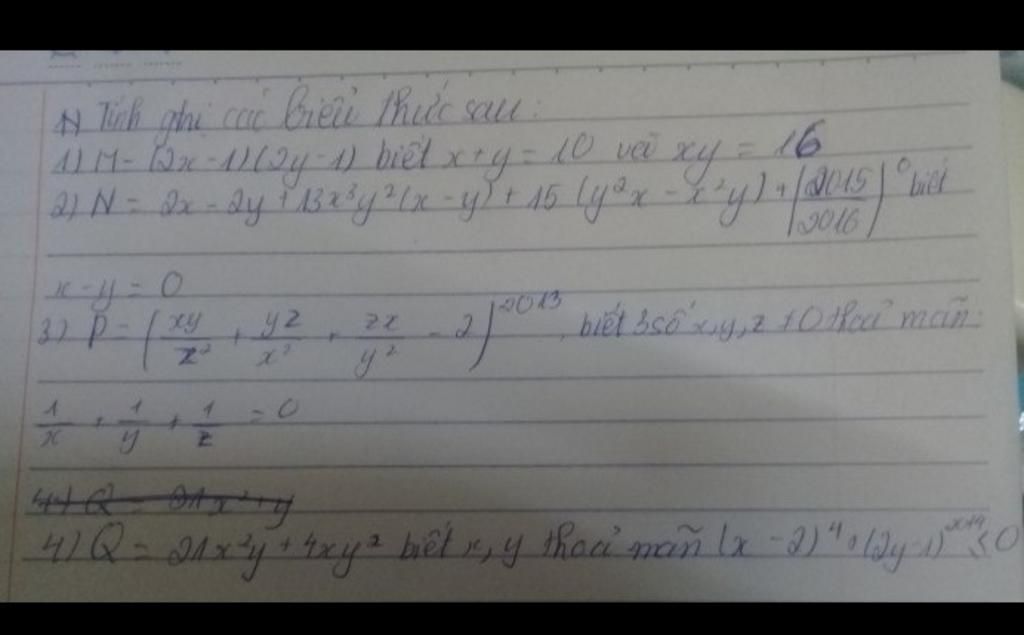 Tính ghi các biểu thức sau:
1) M = (2x - 1)(2y - 1) biết x + y = 10 và xy = 16
2) N = 2x - 2y + 13x³y²(x - y) + 15(y²x - x²y) + (2015/2016)⁰ biết
x - y = 0
3) P = (xy/z² + yz/x² + zx/y² - 2)²⁰¹³, biết 3 số x, y, z ≠ 0 thoả mãn:
1/x + 1/y + 1/z = 0
4) Q = 21x² + y
4) Q = 21x²y + 4xy² biết x, y thoả mãn (x - 2)⁴ + (2y - 1) ≤ 0